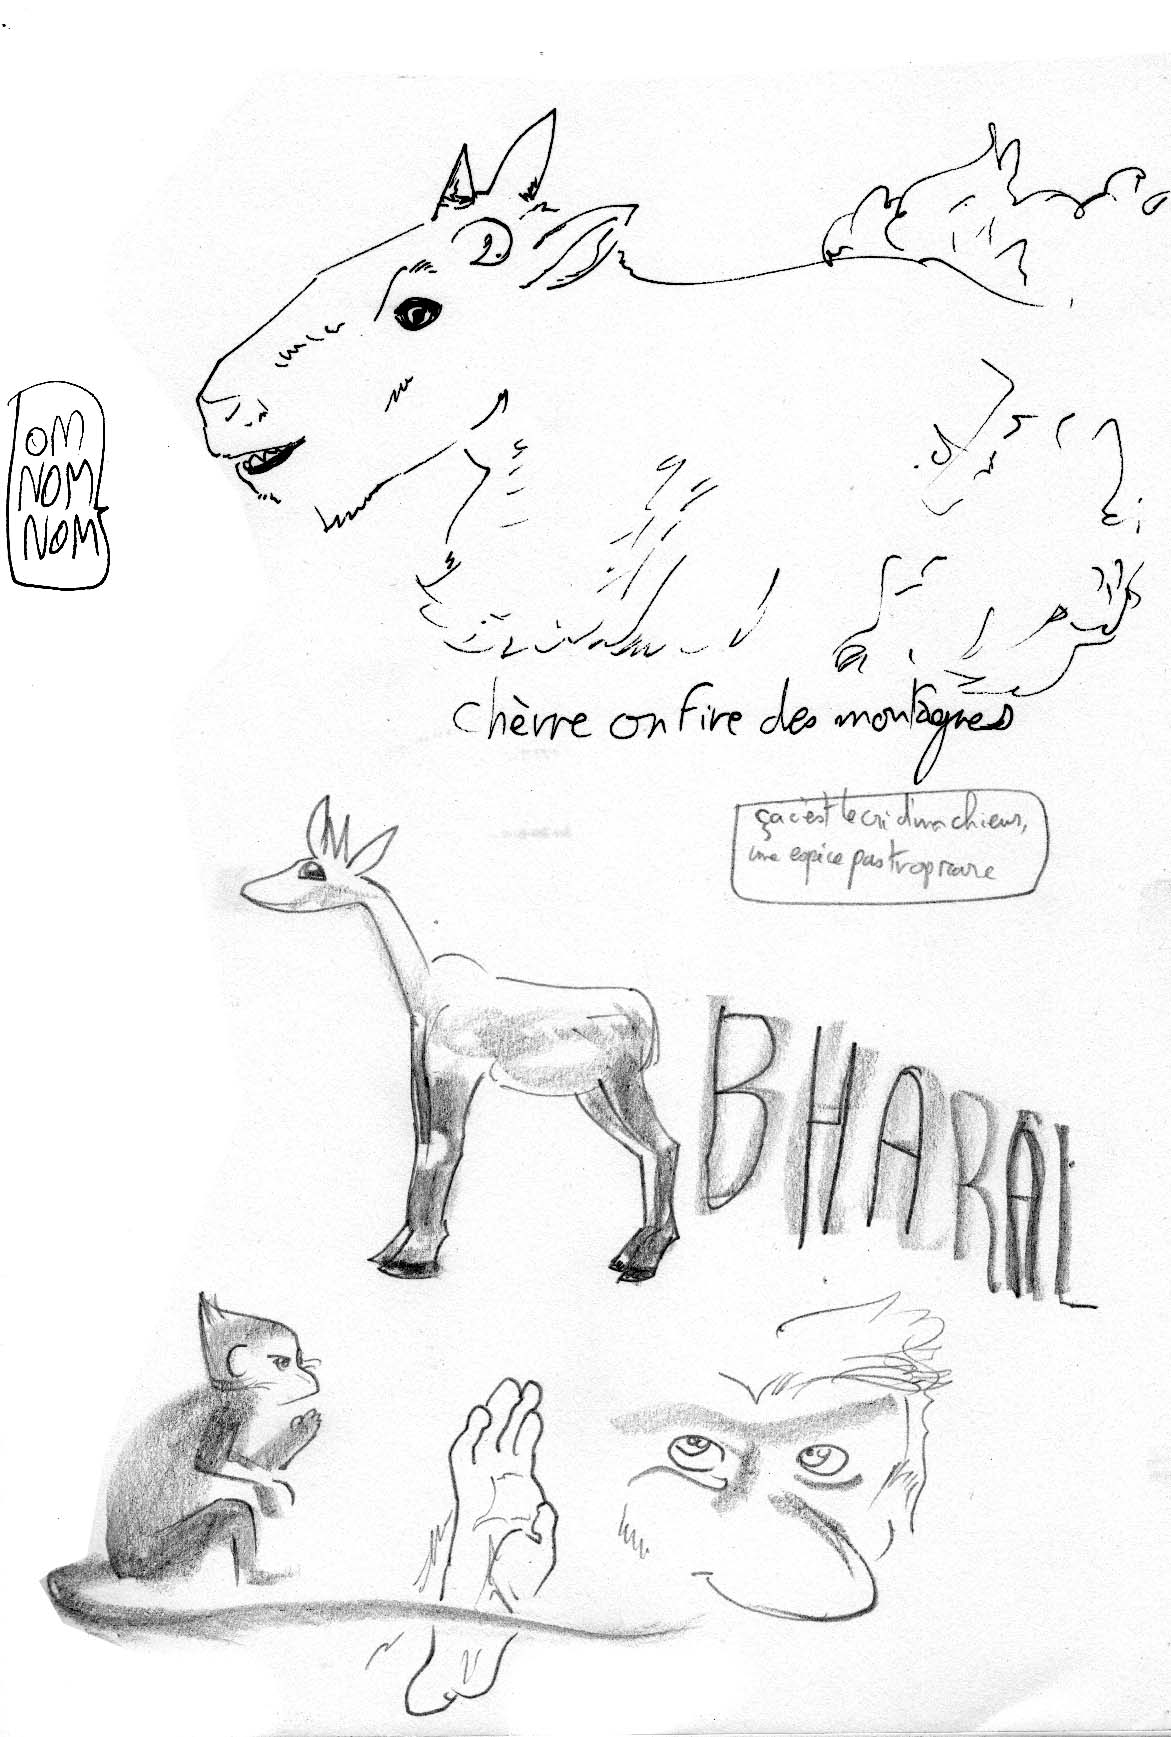 OM
NOM
NOM
chèvre on fire des montagnes
ça c'est le cri d'un chieur,
une espèce pas trop rare
BHARAL